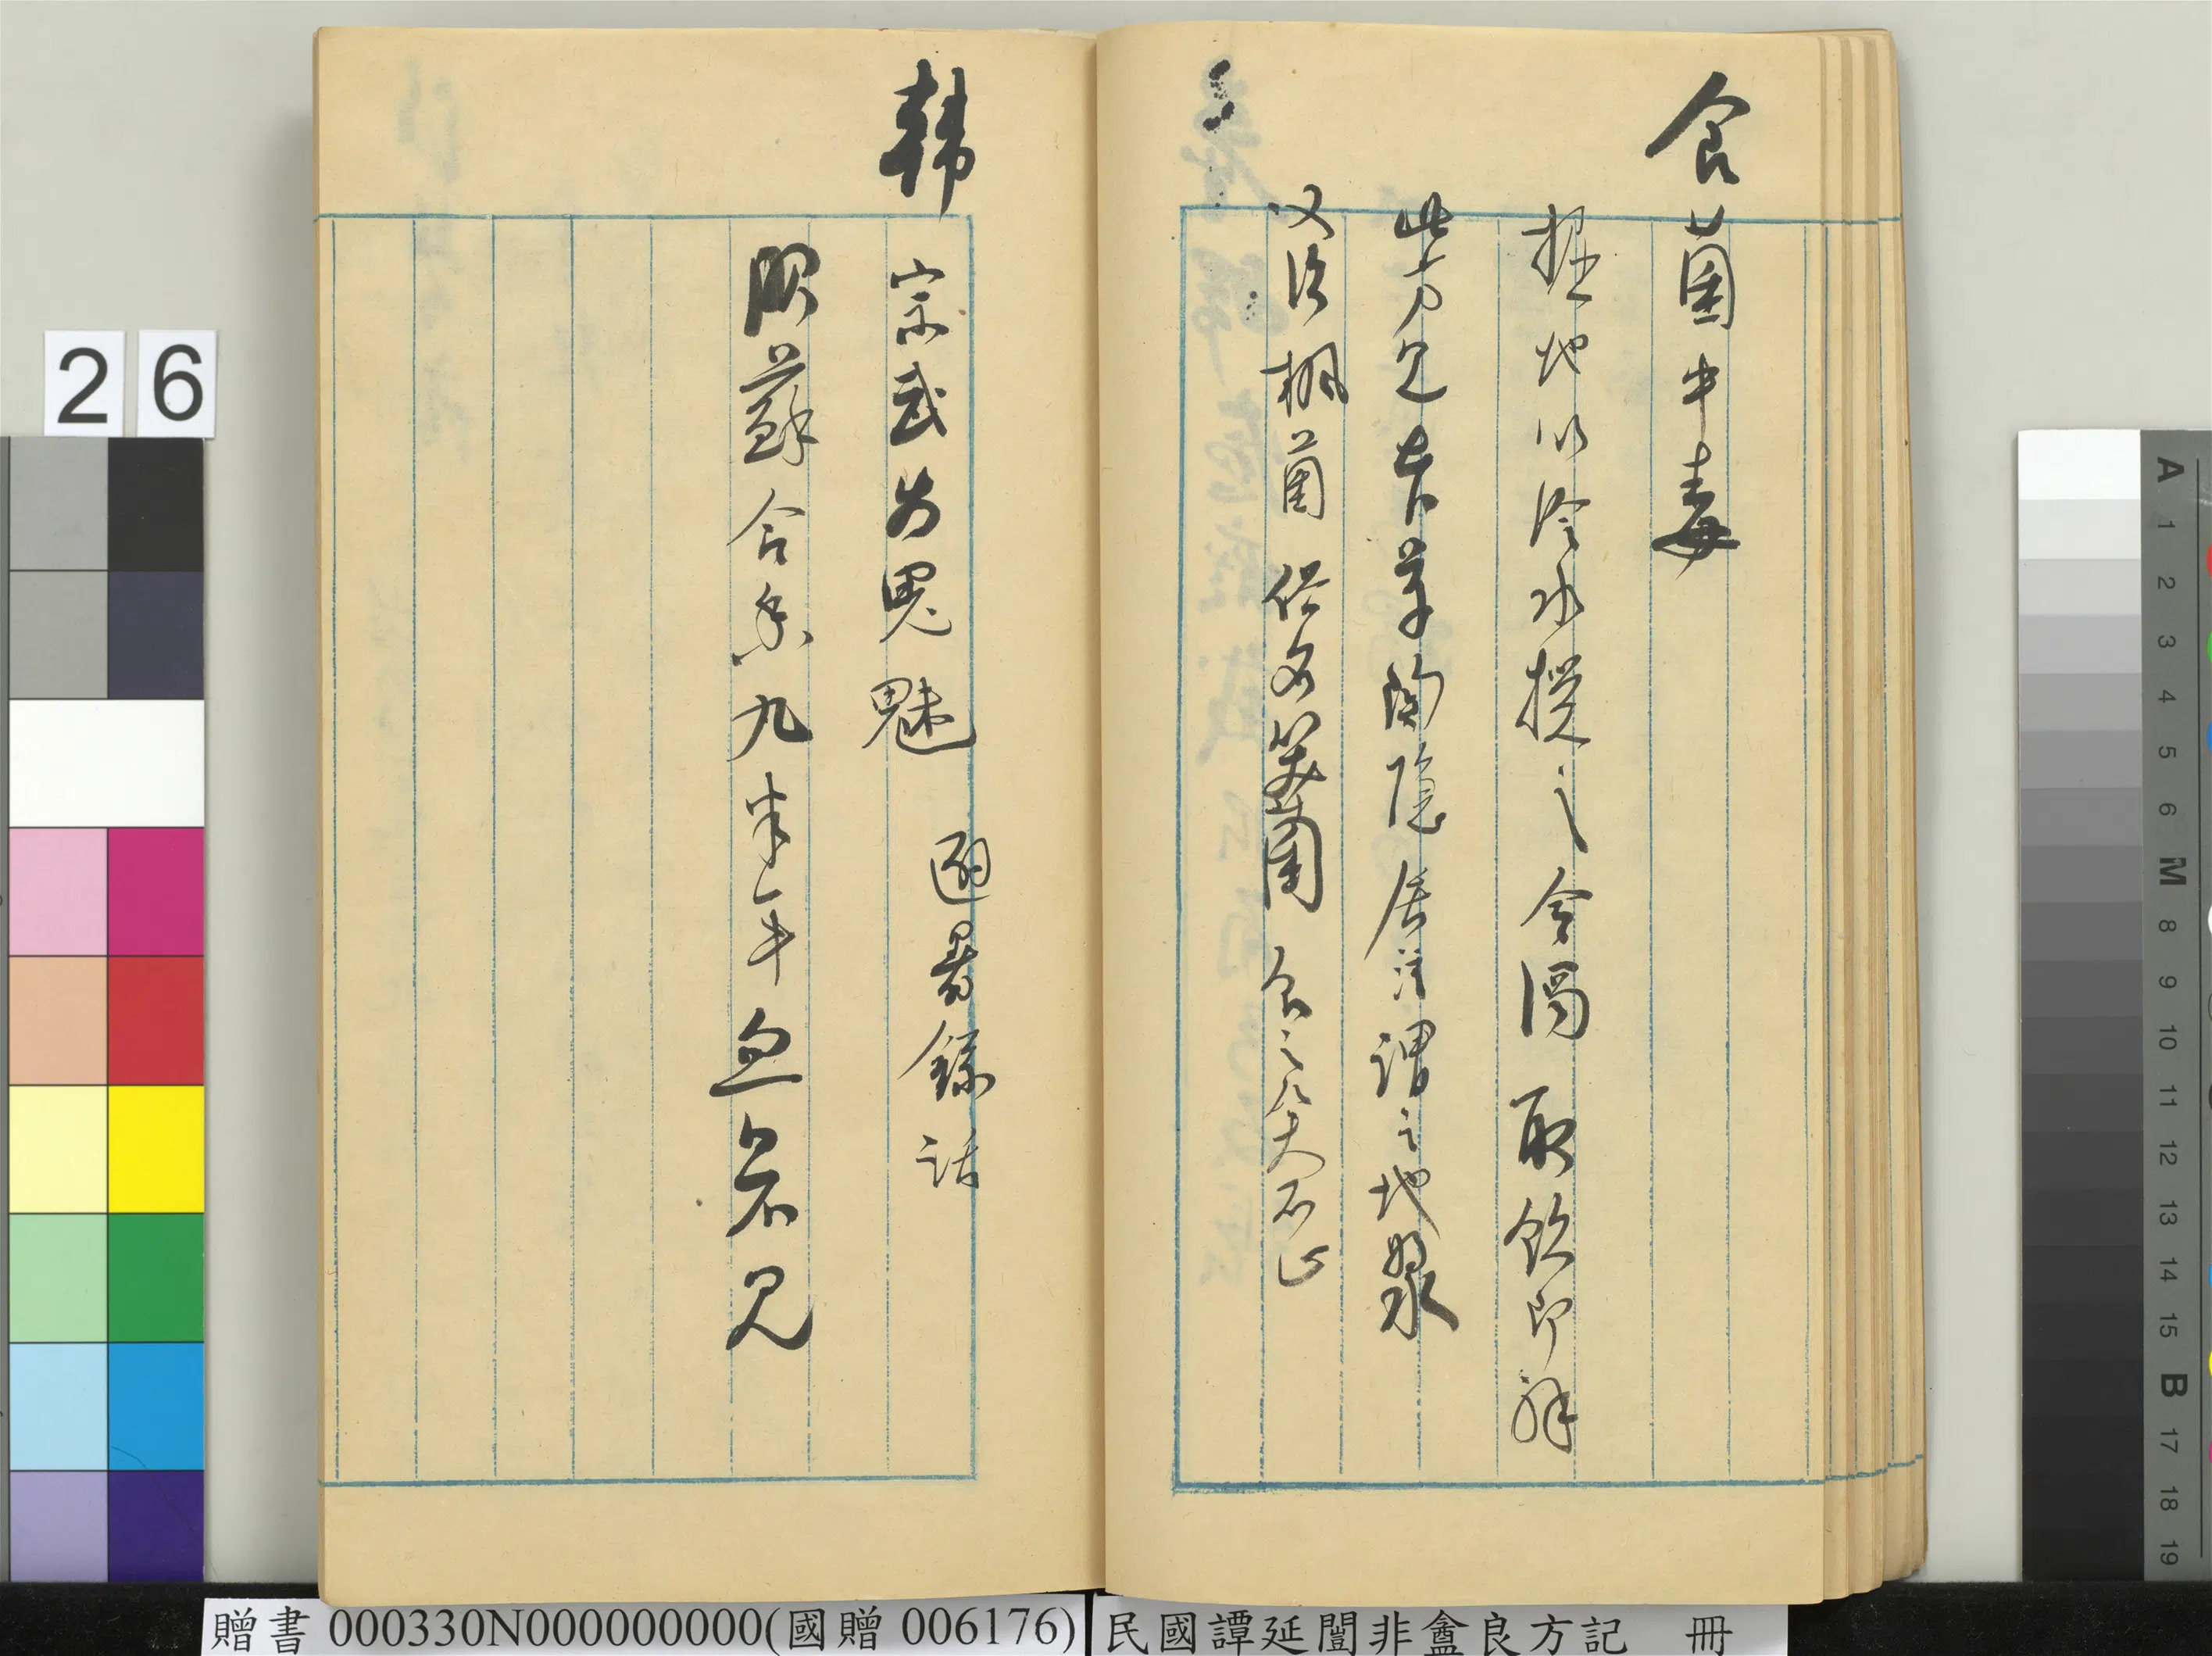 食菌中毒
掘地以冷水攪之令濁取飲即解
此方見本草陶隱居注謂之地漿
又治楓菌俗名笑菌食之人笑不止
韓宗武為鬼魅 避暑錄話
服蘇合香丸半年無所見
26
贈書 000330N000000000(國贈 006176)
民國譚延闓非盦良方記 冊
A 1 2 3 4 5 6 M 8 9 10 11 12 13 14 15 B 17 18 19